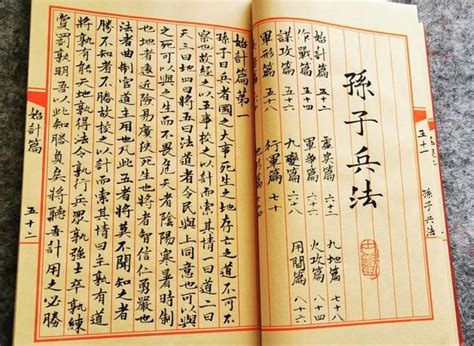 五十一
孫子兵法
孫子兵法
始計篇 五十二 虛實篇 六十二 九地篇 七十八
作戰篇 五十四 軍爭篇 火攻篇
謀攻篇 五十六 九變篇 六十八 用間篇 八十六
軍形篇 五十八 行軍篇
始計篇第一
孫子曰兵者國之大事死生之地存亡之道不可不
察也故經之以五事校之以計而索其情一曰道二曰
天三曰地四曰將五曰法道者令民與上同意也可以與
之死可以與之生而不畏危天者陰陽寒暑時制
也地者遠近險易廣狹死生也將者智信仁勇嚴也
法者曲制官道主用也凡此五者將莫不聞知之者
勝不知者不勝故校之以計而索其情曰主孰有道
將孰有能天地孰得法令孰行兵眾孰強士卒孰練
賞罰孰明吾以此知勝負矣將聽吾計用之必勝
始計篇
五十二